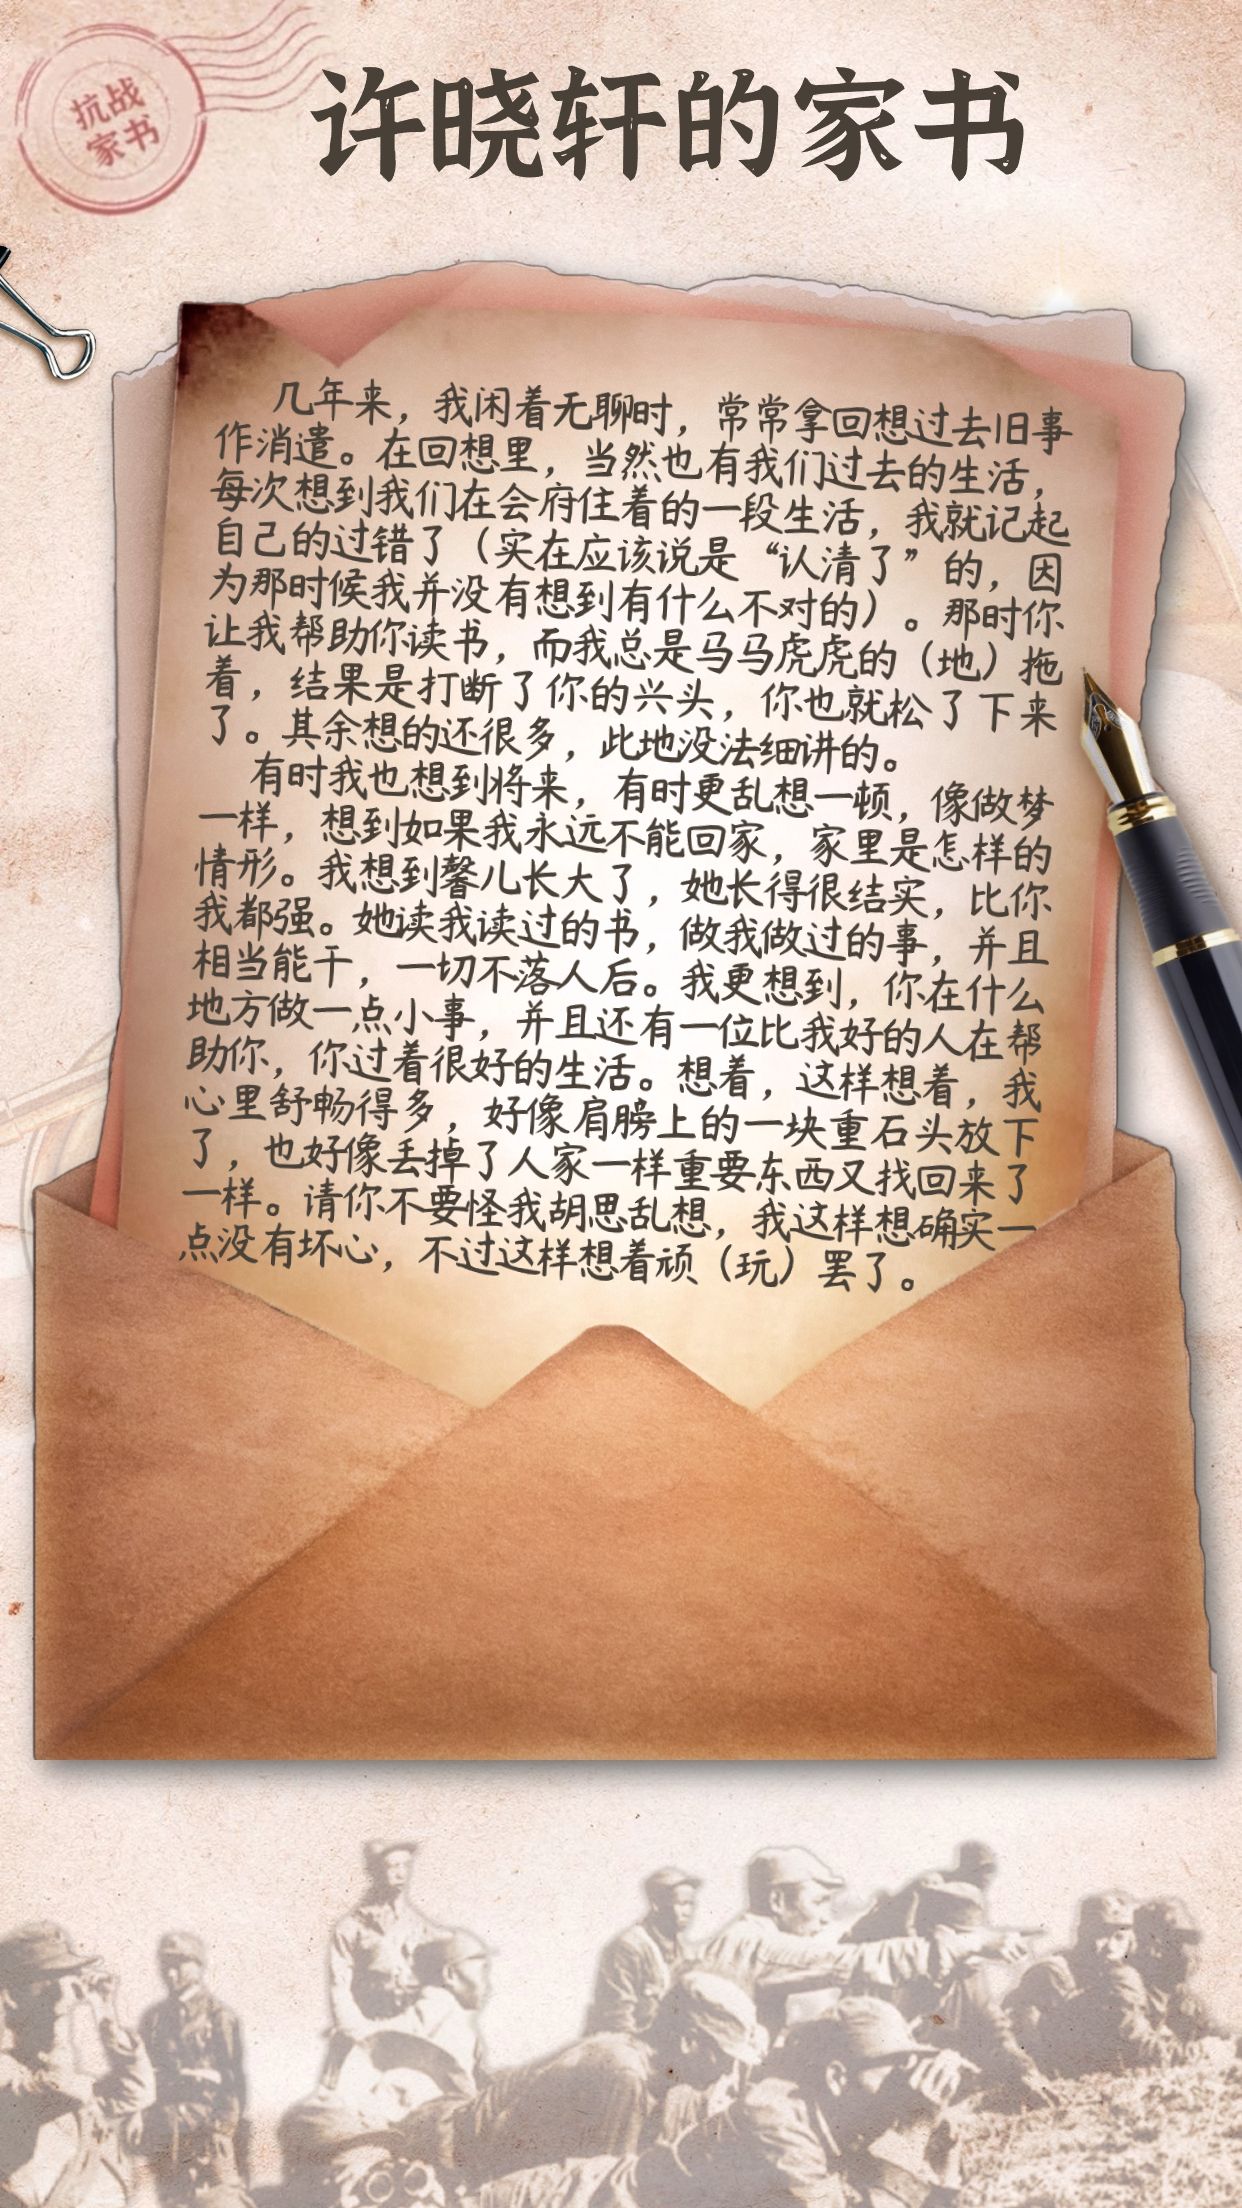 抗战
家书
许晓轩的家书
几年来，我闲着无聊时，常常拿回想过去旧事
作消遣。在回想里，当然也有我们过去的生活，
每次想到我们在会府住着的一段生活，我就记起
自己的过错了（实在应该说是“认清了”的，因
为那时候我并没有想到有什么不对的）。那时你
让我帮助你读书，而我总是马马虎虎的（地）拖
着，结果是打断了你的兴头，你也就松了下来
了。其余想的还很多，此地没法细讲的。
有时我也想到将来，有时更乱想一顿，像做梦
一样，想到如果我永远不能回家，家里是怎样的
情形。我想到馨儿长大了，她长得很结实，比你
我都强。她读我读过的书，做我做过的事，并且
相当能干，一切不落人后。我更想到，你在什么
地方做一点小事，并且还有一位比我好的人在帮
助你，你过着很好的生活。想着，这样想着，我
心里舒畅得多，好像肩膀上的一块重石头放下
了，也好像丢掉了人家一样重要东西又找回来了
一样。请你不要怪我胡思乱想，我这样想确实一
点没有坏心，不过这样想着顽（玩）罢了。